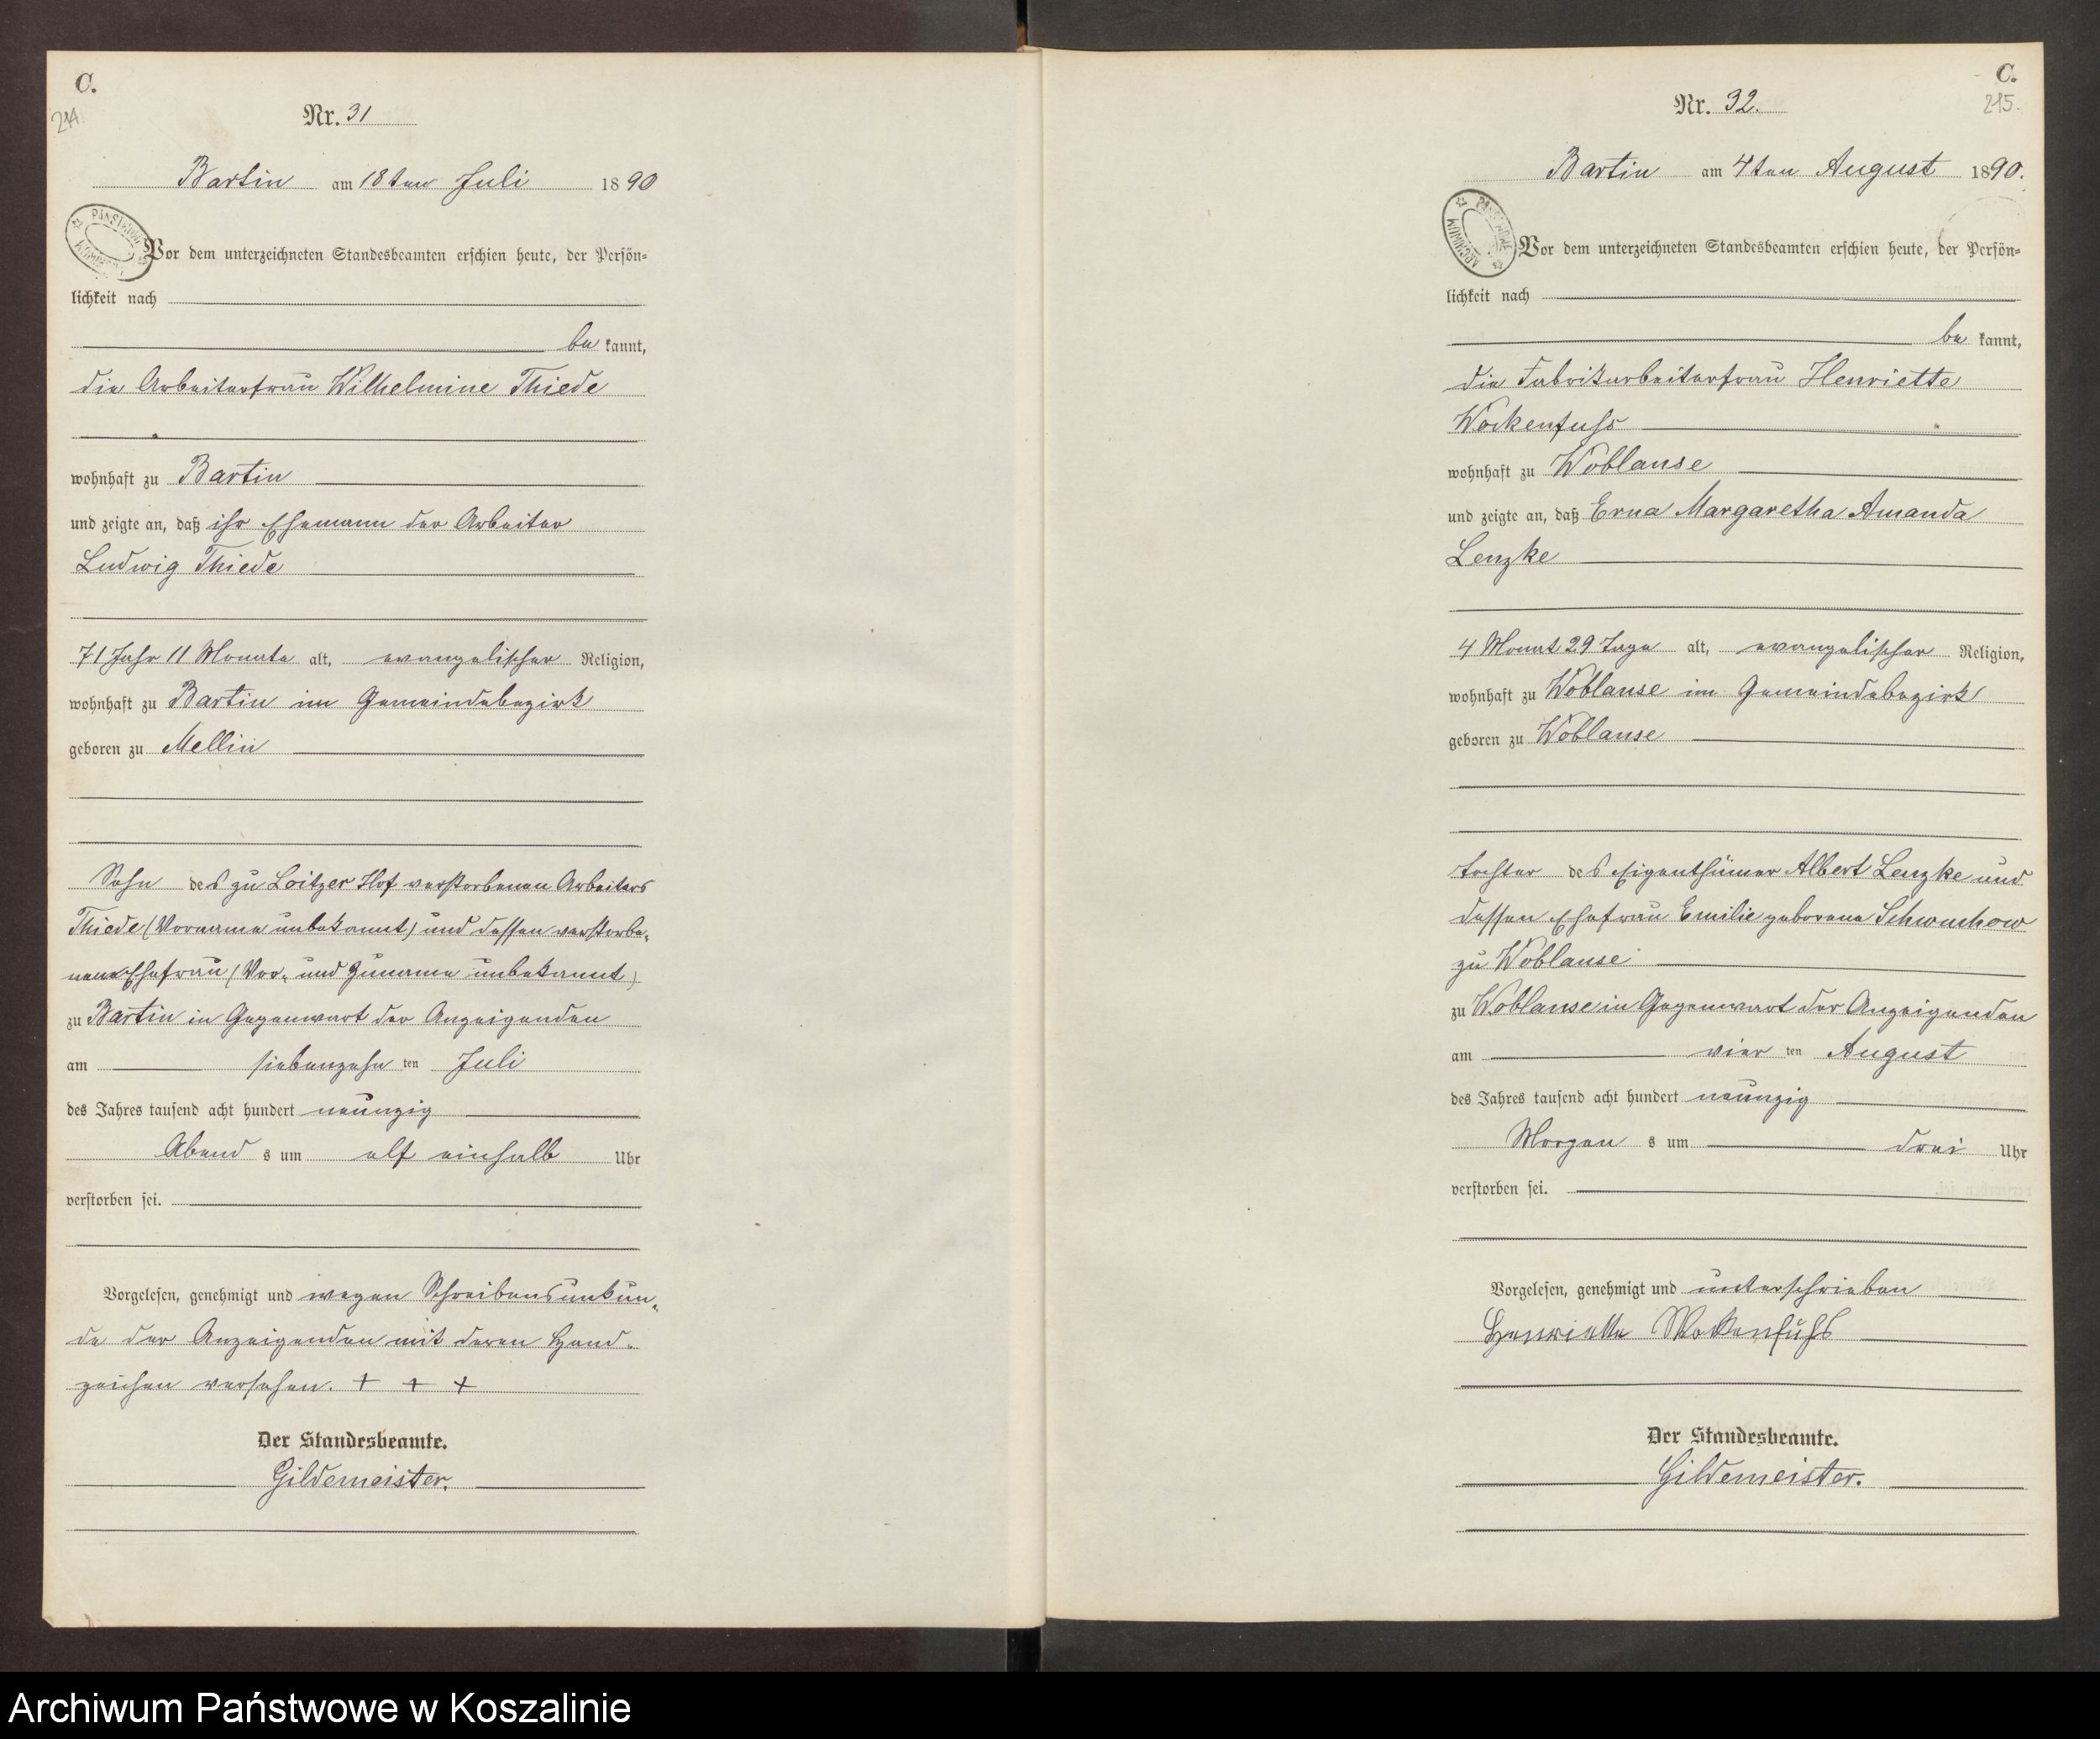 C.
214.
Nr. 31
Bartin am 18ten Juli 1890
Vor dem unterzeichneten Standesbeamten erschien heute, der Persön-
lichkeit nach
be kannt,
die Arbeiterfrau Wilhelmine Thiede
wohnhaft zu Bartin
und zeigte an, daß ihr Ehemann der Arbeiter
Ludwig Thiede
71 Jahr 11 Monate alt, evangelischer Religion,
wohnhaft zu Bartin im Gemeindebezirk
geboren zu Mellin
Sohn des zu Loitzer Hof verstorbenen Arbeiters
Thiede (Vorname unbekannt) und dessen verstorbe-
nen Ehefrau (Vor- und Zuname unbekannt)
zu Bartin in Gegenwart der Anzeigenden
am siebenzehn ten Juli
des Jahres tausend acht hundert neunzig
Abend s um elf einhalb Uhr
verstorben sei.
Vorgelesen, genehmigt und wegen Schreibensunkun-
de der Anzeigenden mit deren Hand-
zeichen versehen. + + +
Der Standesbeamte.
Gildemeister.
C.
215.
Nr. 32.
Bartin am 4ten August 1890.
PAŃSTWOWE ARCHIWUM
Vor dem unterzeichneten Standesbeamten erschien heute, der Persön-
lichkeit nach
be kannt,
die Fabrikarbeiterfrau Henriette
Wockenfuhs
wohnhaft zu Woblanse
und zeigte an, daß Erna Margaretha Amanda
Lenzke
4 Monat 29 Tage alt, evangelischer Religion,
wohnhaft zu Woblanse im Gemeindebezirk
geboren zu Woblanse
Tochter des Eigenthümer Albert Lenzke und
dessen Ehefrau Emilie geborene Schwuchow
zu Woblanse
zu Woblanse in Gegenwart der Anzeigenden
am vier ten August
des Jahres tausend acht hundert neunzig
Morgen s um drei Uhr
verstorben sei.
Vorgelesen, genehmigt und unterschrieben
Henriette Wockenfuhs
Der Standesbeamte.
Gildemeister.
Archiwum Państwowe w Koszalinie